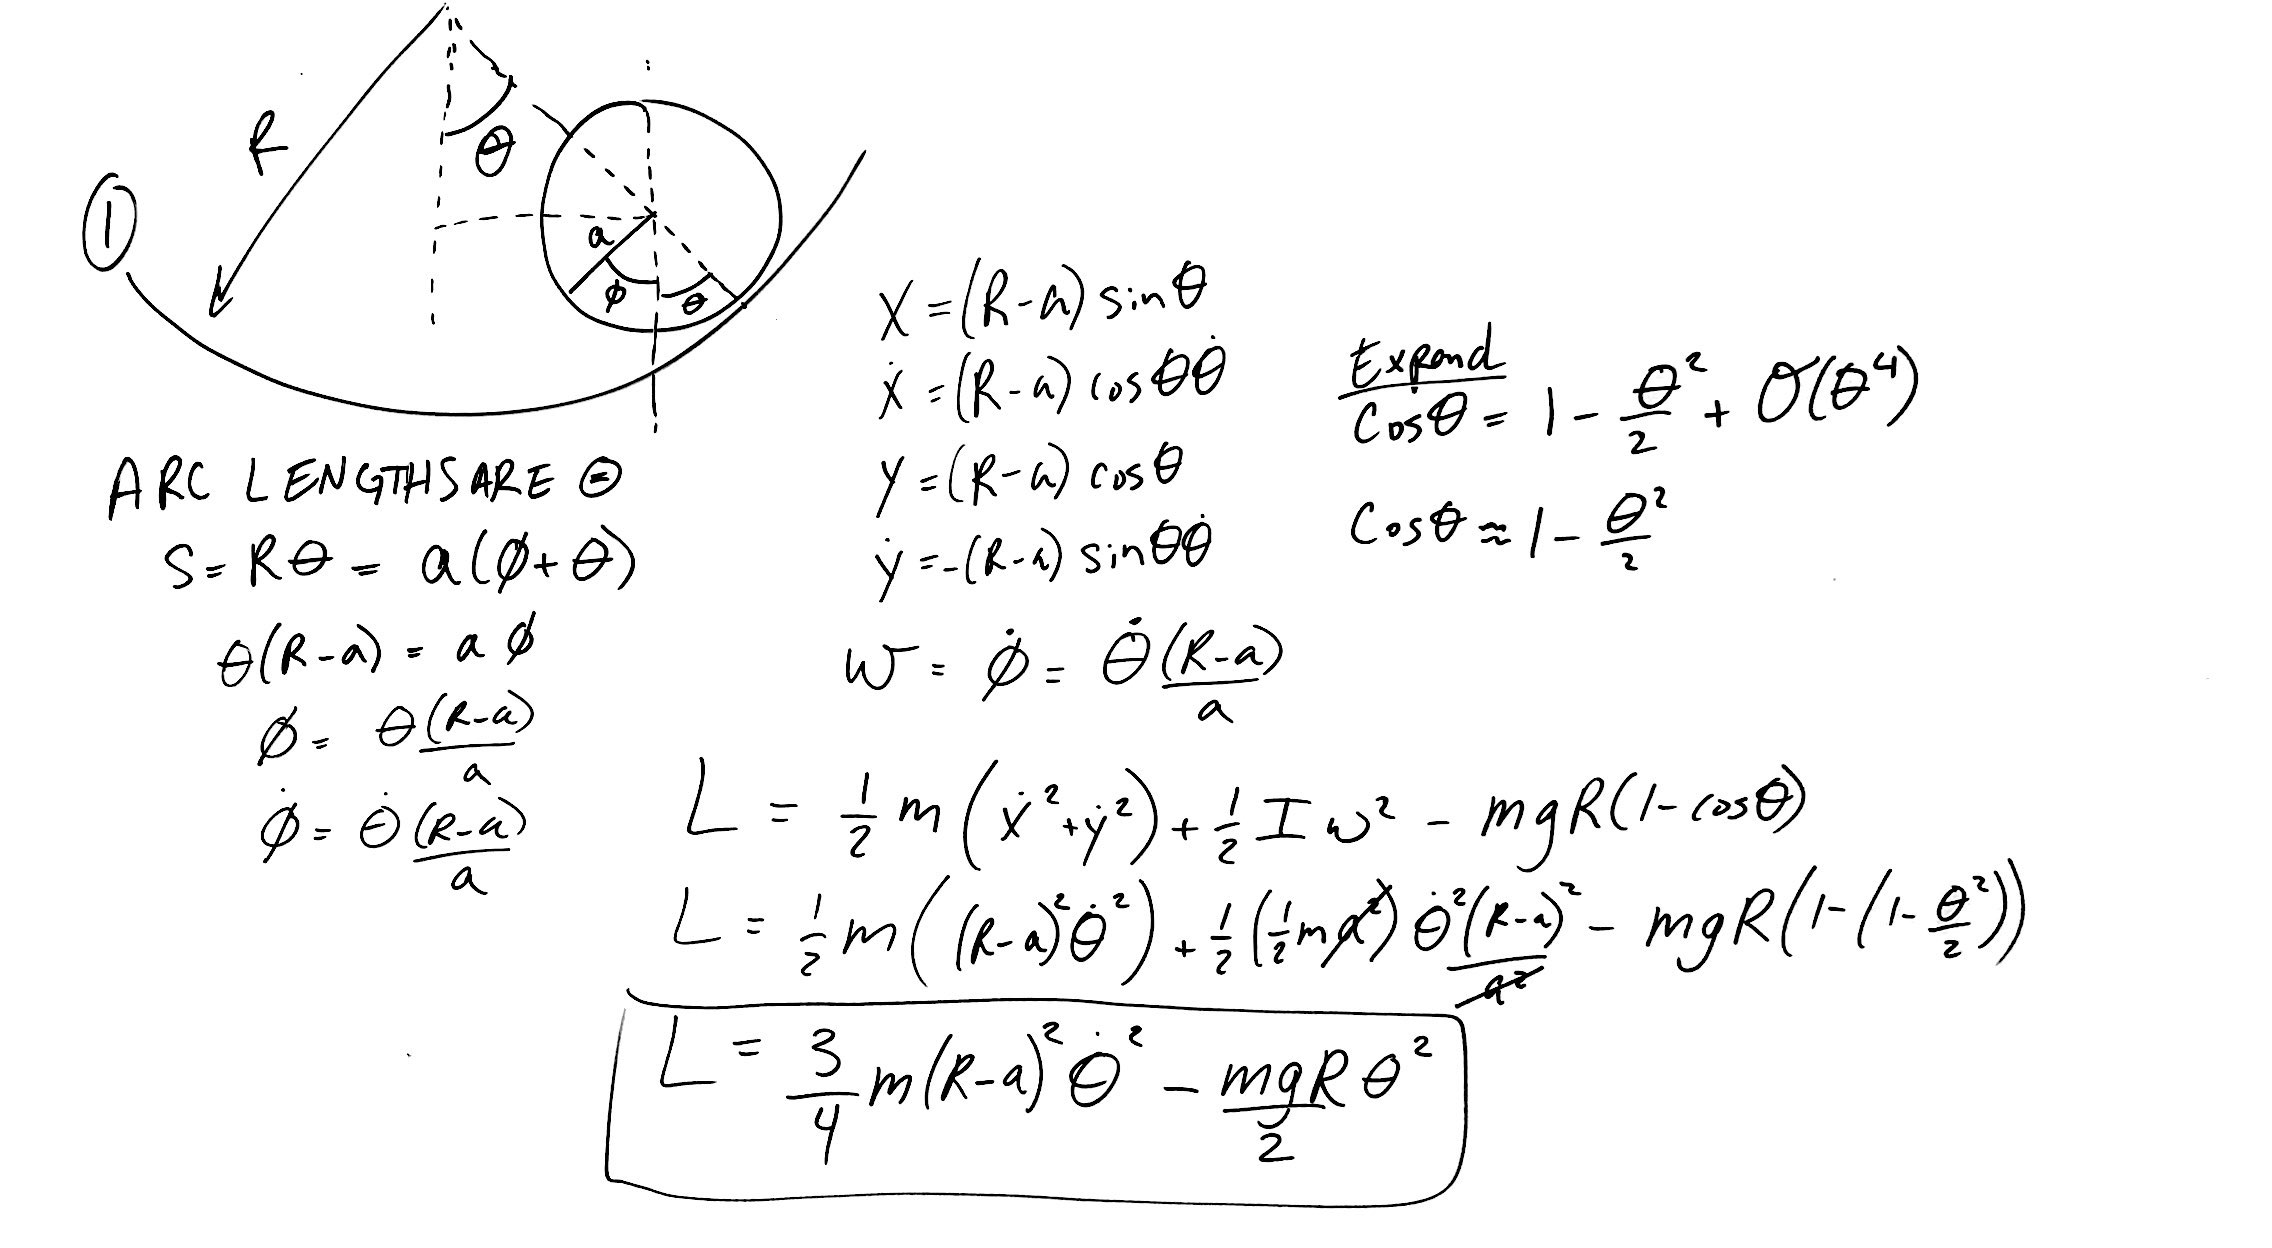 ①
R
θ
a
φ
θ
ARC LENGTHS ARE ⊜
S = Rθ = a(φ + θ)
θ(R-a) = a φ
φ = θ(R-a)/a
φ̇ = θ̇(R-a)/a
X = (R-a) sinθ
ẋ = (R-a) cosθθ̇
y = (R-a) cosθ
ẏ = -(R-a) sinθθ̇
W = φ̇ = θ̇(R-a)/a
Expand
Cosθ = 1 - θ²/2 + O(θ⁴)
Cosθ ≈ 1 - θ²/2
L = 1/2 m (ẋ² + ẏ²) + 1/2 I ω² - mgR(1 - cosθ)
L = 1/2 m ((R-a)²θ̇²) + 1/2 (1/2 ma²) θ̇²(R-a)²/a² - mgR(1 - (1 - θ²/2))
L = 3/4 m(R-a)² θ̇² - mgR/2 θ²